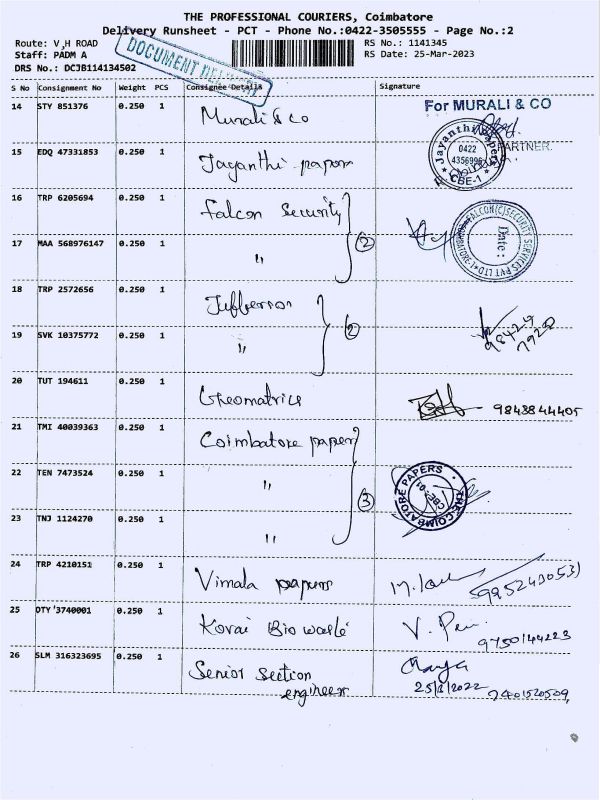 THE PROFESSIONAL COURIERS, Coimbatore
Delivery Runsheet - PCT - Phone No.:0422-3505555 - Page No.:2
Route: V H ROAD
Staff: PADM A
DRS No.: DCJB114134502
RS No.: 1141345
RS Date: 25-Mar-2023
DOCUMENT
S No Consignment No Weight PCS Consignee Details Signature
14 STY 851376 0.250 1 Murali & co For MURALI & CO
PARTNER
15 EDQ 47331853 0.250 1 Jayanthi papers Jayanthi Papers 0422 CBE-1
16 TRP 6205694 0.250 1 Falcon Security
17 MAA 568976147 0.250 1 " 2 FALCON(C)SECURITY SERVICES PVT LTD Date:
18 TRP 2572656 0.250 1 Jefferson
19 SVK 10375772 0.250 1 " 2 98429
20 TUT 194611 0.250 1 Geomatrics 9843844405
21 TMI 40039363 0.250 1 Coimbatore papers
22 TEN 7473524 0.250 1 " 3 THE COIMBATORE PAPERS
23 TNJ 1124270 0.250 1 "
24 TRP 4210151 0.250 1 Vimala papers
25 DTY 3740001 0.250 1 Kovai Bio waste 9750144223
26 SLM 316323695 0.250 1 Senior section
engineer 25/3/2022 7401520509